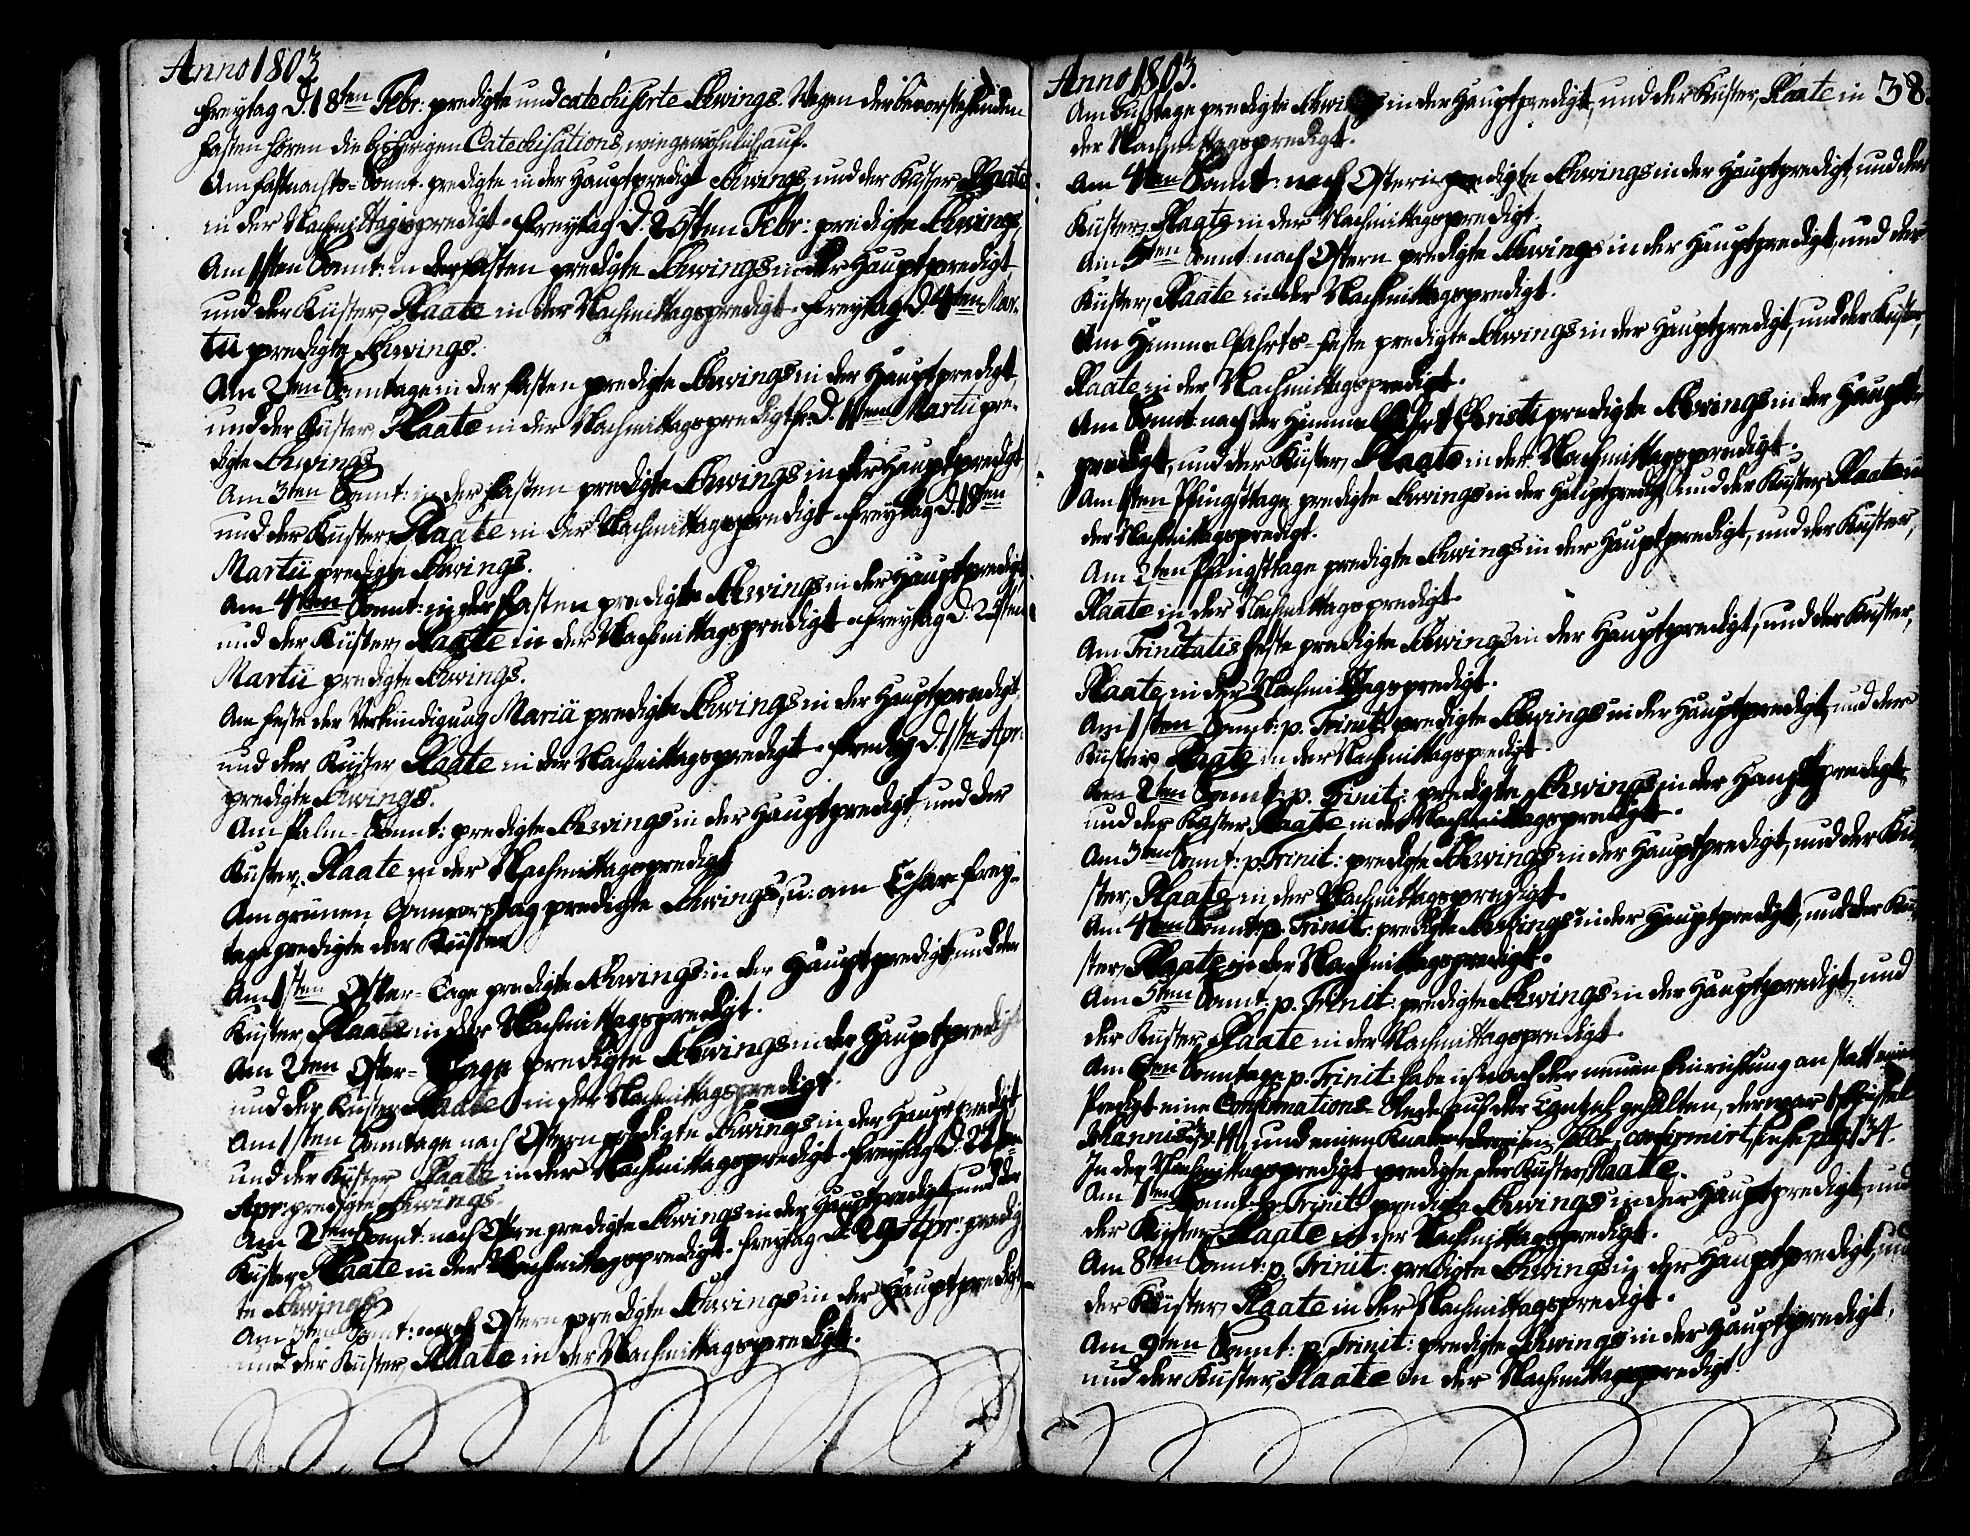 Anno 1803
Freytag d. 18ten Febr: predigte und catechisirte Ahwings. Wegen der bevorstehenden
Fasten hören die bisherigen Catechisations, wie gewöhnlich, auf.
Am Fastnachts-Sonnt. predigte in der Hauptpredigt Ahwings, und der Küster, Plaate
in der Nachmittagspredigt. Freytag d. 25sten Febr: predigte Ahwings.
Am 1sten Sonnt: in der Fasten predigte Ahwings in der Hauptpredigt
und der Küster, Plaate in der Nachmittagspredigt. Freytag d. 4ten Mar-
tii predigte Ahwings.
Am 2ten Sonntage in der Fasten predigte Ahwings in der Hauptpredigt,
und der Küster, Plaate in der Nachmittagspredigt Fr. d. 11ten Martii pre-
digte Ahwings
Am 3ten Sonnt: in der Fasten predigte Ahwings in der Hauptpredigt,
und der Küster, Plaate in der Nachmittagspredigt. Freytag d. 18ten
Martii predigte Ahwings.
Am 4ten Sonnt: in der Fasten predigte Ahwings in der Hauptpredigt,
und der Küster, Plaate in der Nachmittagspredigt. Freytag d. 25sten
Martii predigte Ahwings.
Am Feste der Verkündigung Mariä predigte Ahwings in der Hauptpredigt
und der Küster Plaate in der Nachmittagspredigt. Freytag d. 1ste Apr:
predigte Ahwings.
Am Palm-Sonnt: predigte Ahwings in der Hauptpredigt, und der
Küster, Plaate in der Nachmittagspredigt
Am grünen Donnerstag predigte Ahwings, u. am Char Frey-
tage predigte der Küster
Am 1sten Oster-Tage predigte Ahwings in der Hauptpredigt, und der
Küster, Plaate in der Nachmittagspredigt.
Am 2ten Oster-Tage predigte Ahwings in der Hauptpredigt
und der Küster Plaate in der Nachmittagspredigt.
Am 1sten Sonntage nach Ostern predigte Ahwings in der Hauptpredigt
und der Küster, Plaate in der Nachmittagspredigt. Freytag d. 22sten
Apr: predigte Ahwings.
Am 2ten Sonnt: nach Ostern predigte Ahwings in der Hauptpredigt, und der
Küster, Plaate in der Nachmittagspredigt. Freytag d. 29 Apr: predig
te Ahwings
Am 3ten Sonnt: nach Ostern predigte Ahwings in der Hauptpredigt
und der Küster, Plaate in der Nachmittagspredigt.
Anno 1803.
38.
Am Bußtage predigte Ahwings in der Hauptpredigt, und der Küster, Plaate in
der Nachmittagspredigt.
Am 4ten Sonnt: nach Ostern predigte Ahwings in der Hauptpredigt, und der
Küster, Plaate in der Nachmittagspredigt.
Am 5ten Sonnt: nach Ostern predigte Ahwings in der Hauptpredigt, und der
Küster, Plaate in der Nachmittagspredigt.
Am Himmelfahrts-Feste predigte Ahwings in der Hauptpredigt, und der Küster,
Plaate in der Nachmittagspredigt.
Am Sonnt: nach der Himmelfahrt Christi predigte Ahwings in der Haupt-
predigt, und der Küster, Plaate in der Nachmittagspredigt.
Am 1sten Pfingsttage predigte Ahwings in der Hauptpredigt, und der Küster, Plaate in
der Nachmittagspredigt.
Am 2ten Pfingsttage predigte Ahwings in der Hauptpredigt, und der Küster,
Plaate in der Nachmittagspredigt.
Am Trinitatis Feste predigte Ahwings in der Hauptpredigt, und der Küster,
Plaate, in der Nachmittagspredigt.
Am 1sten Sonnt: p. Trinit: predigte Ahwings in der Hauptpredigt, und der
Küster, Plaate in der Nachmittagspredigt.
Am 2ten Sonnt: p. Trinit: predigte Ahwings in der Hauptpredigt,
und der Küster, Plaate in der Nachmittagspredigt.
Am 3ten Sonnt: p. Trinit: predigte Ahwings in der Hauptpredigt, und der Kü-
ster, Plaate in der Nachmittagspredigt.
Am 4ten Sonnt: p. Trinit: predigte Ahwings in der Hauptpredigt, und der Kü-
ster, Plaate in der Nachmittagspredigt.
Am 5ten Sonnt: p. Trinit: predigte Ahwings in der Hauptpredigt, und
der Küster, Plaate in der Nachmittagspredigt.
Am 6ten Sonntage p. Trinit: habe ich nach der neuen Einrichtung anstatt einer
Predigt eine Confirmations-Rede auf der Cantzel gehalten, der war 1 Epistel
Johannis, und einen Knaben confirmirt, siehe pag: 134.
In der Nachmittagspredigt predigte der Küster, Plaate.
Am 7ten Sonnt: p. Trinit: predigte Ahwings in der Hauptpredigt, und
der Küster, Plaate in der Nachmittagspredigt.
Am 8ten Sonnt: p. Trinit: predigte Ahwings in der Hauptpredigt, und
der Küster, Plaate in der Nachmittagspredigt.
Am 9ten Sonnt: p. Trinit: predigte Ahwings in der Hauptpredigt,
und der Küster, Plaate in der Nachmittagspredigt